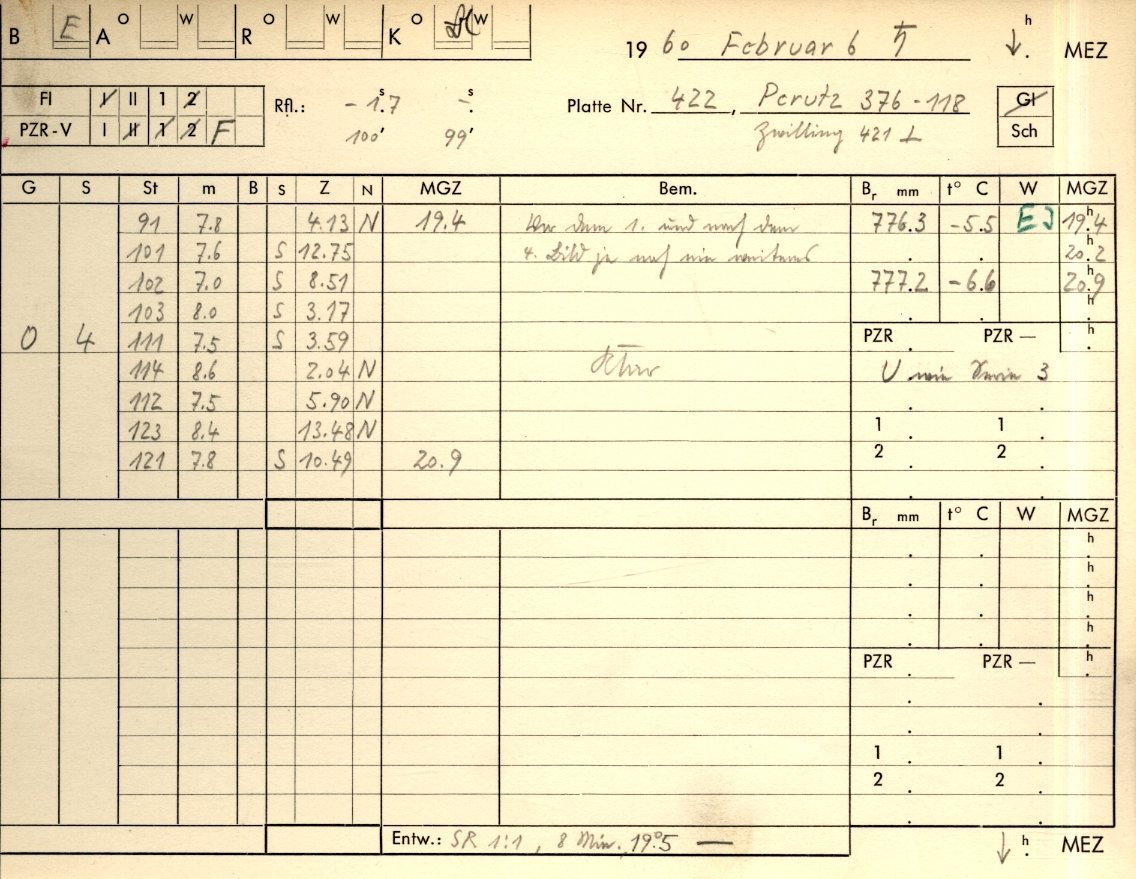 B E A O W R O W K O W
19 60 Februar 6 ♄ ↓ h . MEZ
FI I II 1 2
PZR-V I II 1 2 F
Rfl.: - 1.ˢ7 -.ˢ
100' 99'
Platte Nr. 422, Perutz 376-118
Zwilling 421 L
Gl
Sch
G S St m B S Z N MGZ Bem. Br mm t° C W MGZ
91 7.8 4.13 N 19.4 Vor dem 1. und nach dem 776.3 -5.5 EJ 19.ʰ4
101 7.6 S 12.75 4. Bild je noch ein weiteres . . 20.ʰ2
102 7.0 S 8.51 777.2 -6.6 20.ʰ9
103 8.0 S 3.17 . . h .
0 4 111 7.5 S 3.59 PZR . PZR — . h .
114 8.6 2.04 N U wie Serie 3
112 7.5 5.90 N . .
123 8.4 13.48 N 1 . 1 .
121 7.8 S 10.49 20.9 2 . 2 .
Br mm t° C W MGZ
. . h .
. . h .
. . h .
. . h .
PZR . PZR — . h .
1 . 1 .
2 . 2 .
Entw.: SR 1:1, 8 Min., 19.°5 —
↓ h . MEZ